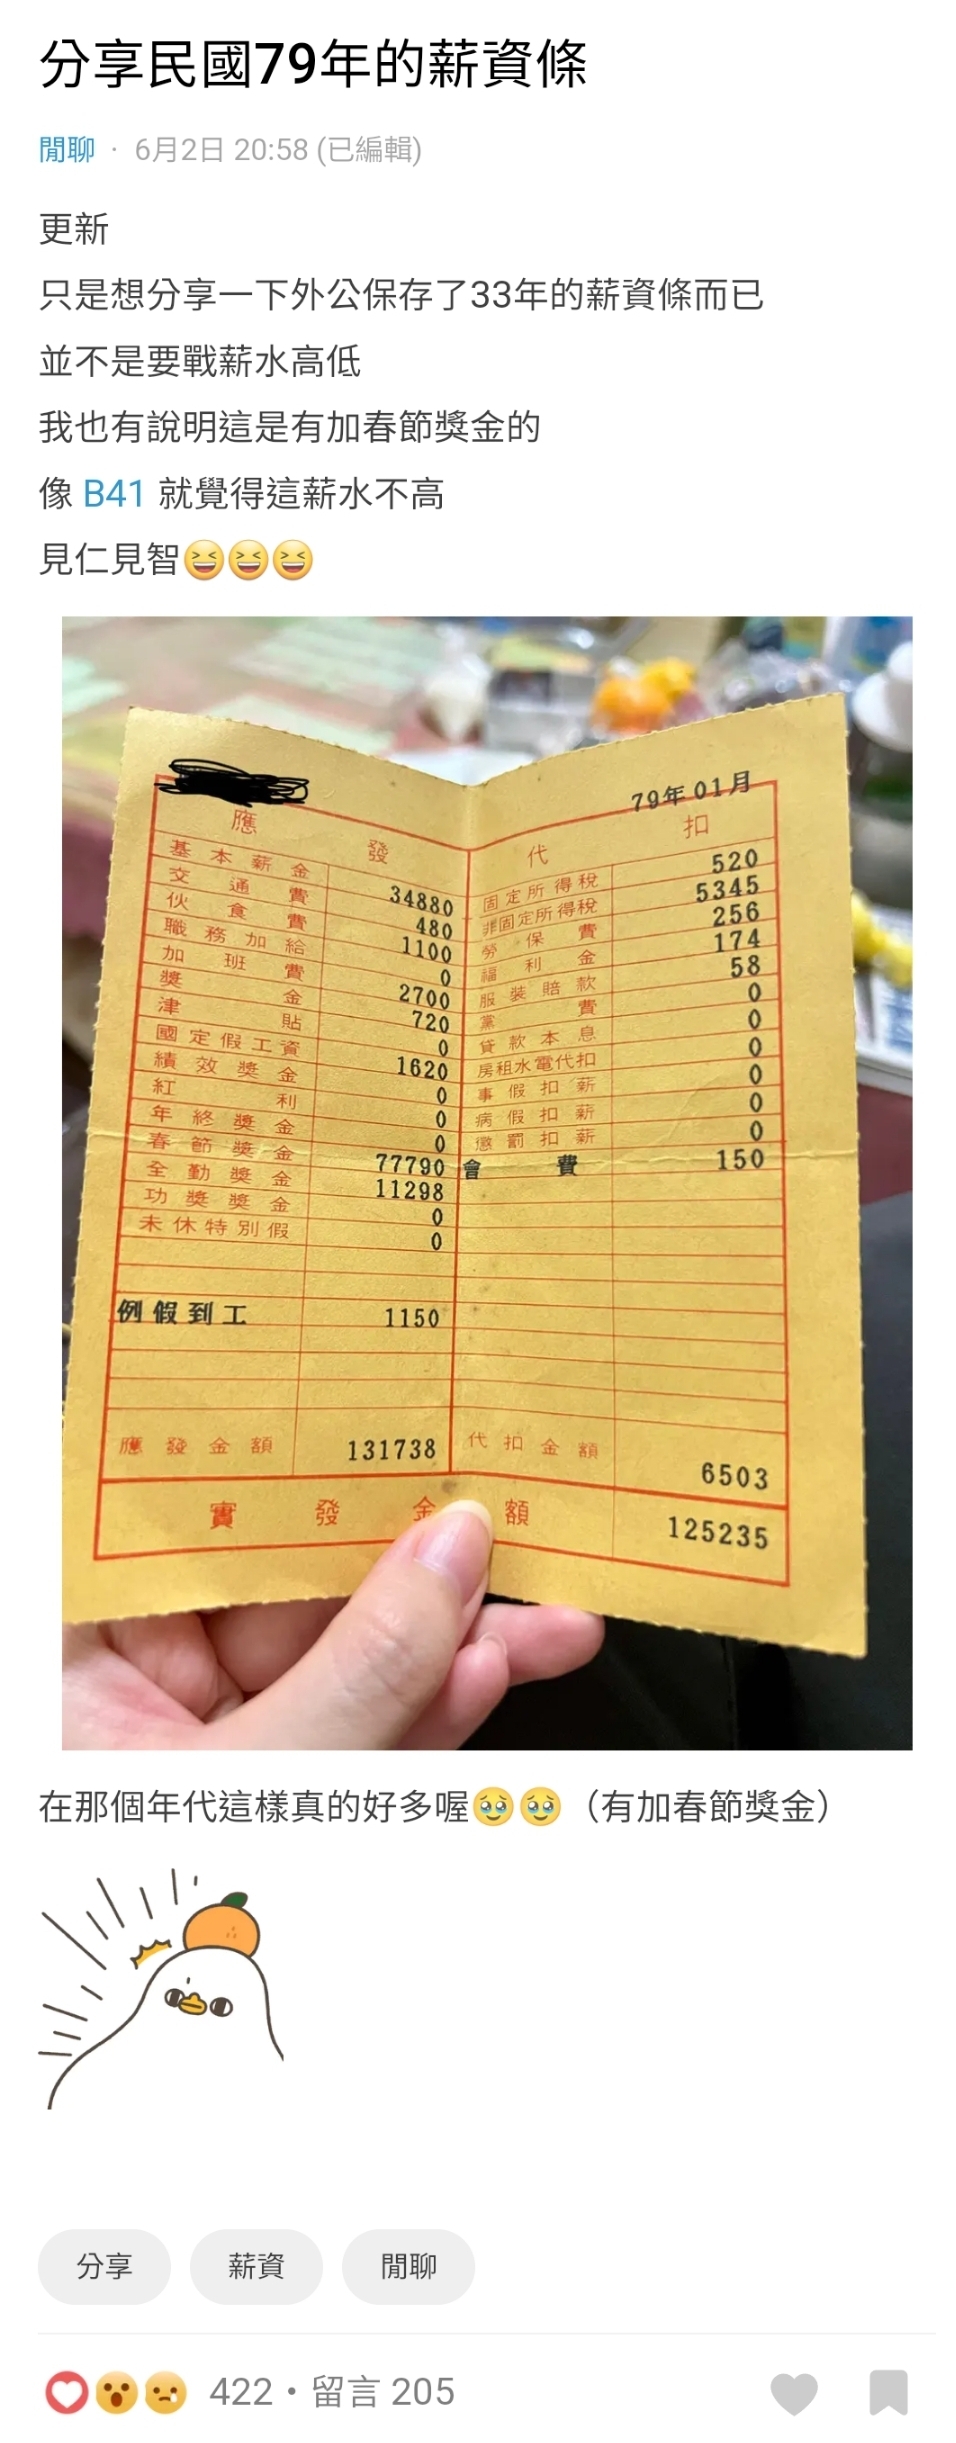 分享民國79年的薪資條
閒聊 · 6月2日 20:58 (已編輯)
更新
只是想分享一下外公保存了33年的薪資條而已
並不是要戰薪水高低
我也有說明這是有加春節獎金的
像 B41 就覺得這薪水不高
見仁見智😆😆😆
79年01月
應發
基本薪金 34880
交通費 480
伙食費 1100
職務加給 0
加班費 2700
獎金 720
津貼 0
國定假工資 1620
績效獎金 0
紅利 0
年終獎金 0
春節獎金 77790
全勤獎金 11298
功獎獎金 0
未休特別假 0
例假到工 1150
應發金額 131738
代扣
固定所得稅 520
非固定所得稅 5345
勞保費 256
福利金 174
服裝賠款 58
黨費 0
貸款本息 0
房租水電代扣 0
事假扣薪 0
病假扣薪 0
懲罰扣薪 0
會費 150
代扣金額 6503
實發金額 125235
在那個年代這樣真的好多喔🥹🥹（有加春節獎金）
分享 薪資 閒聊
422・留言 205